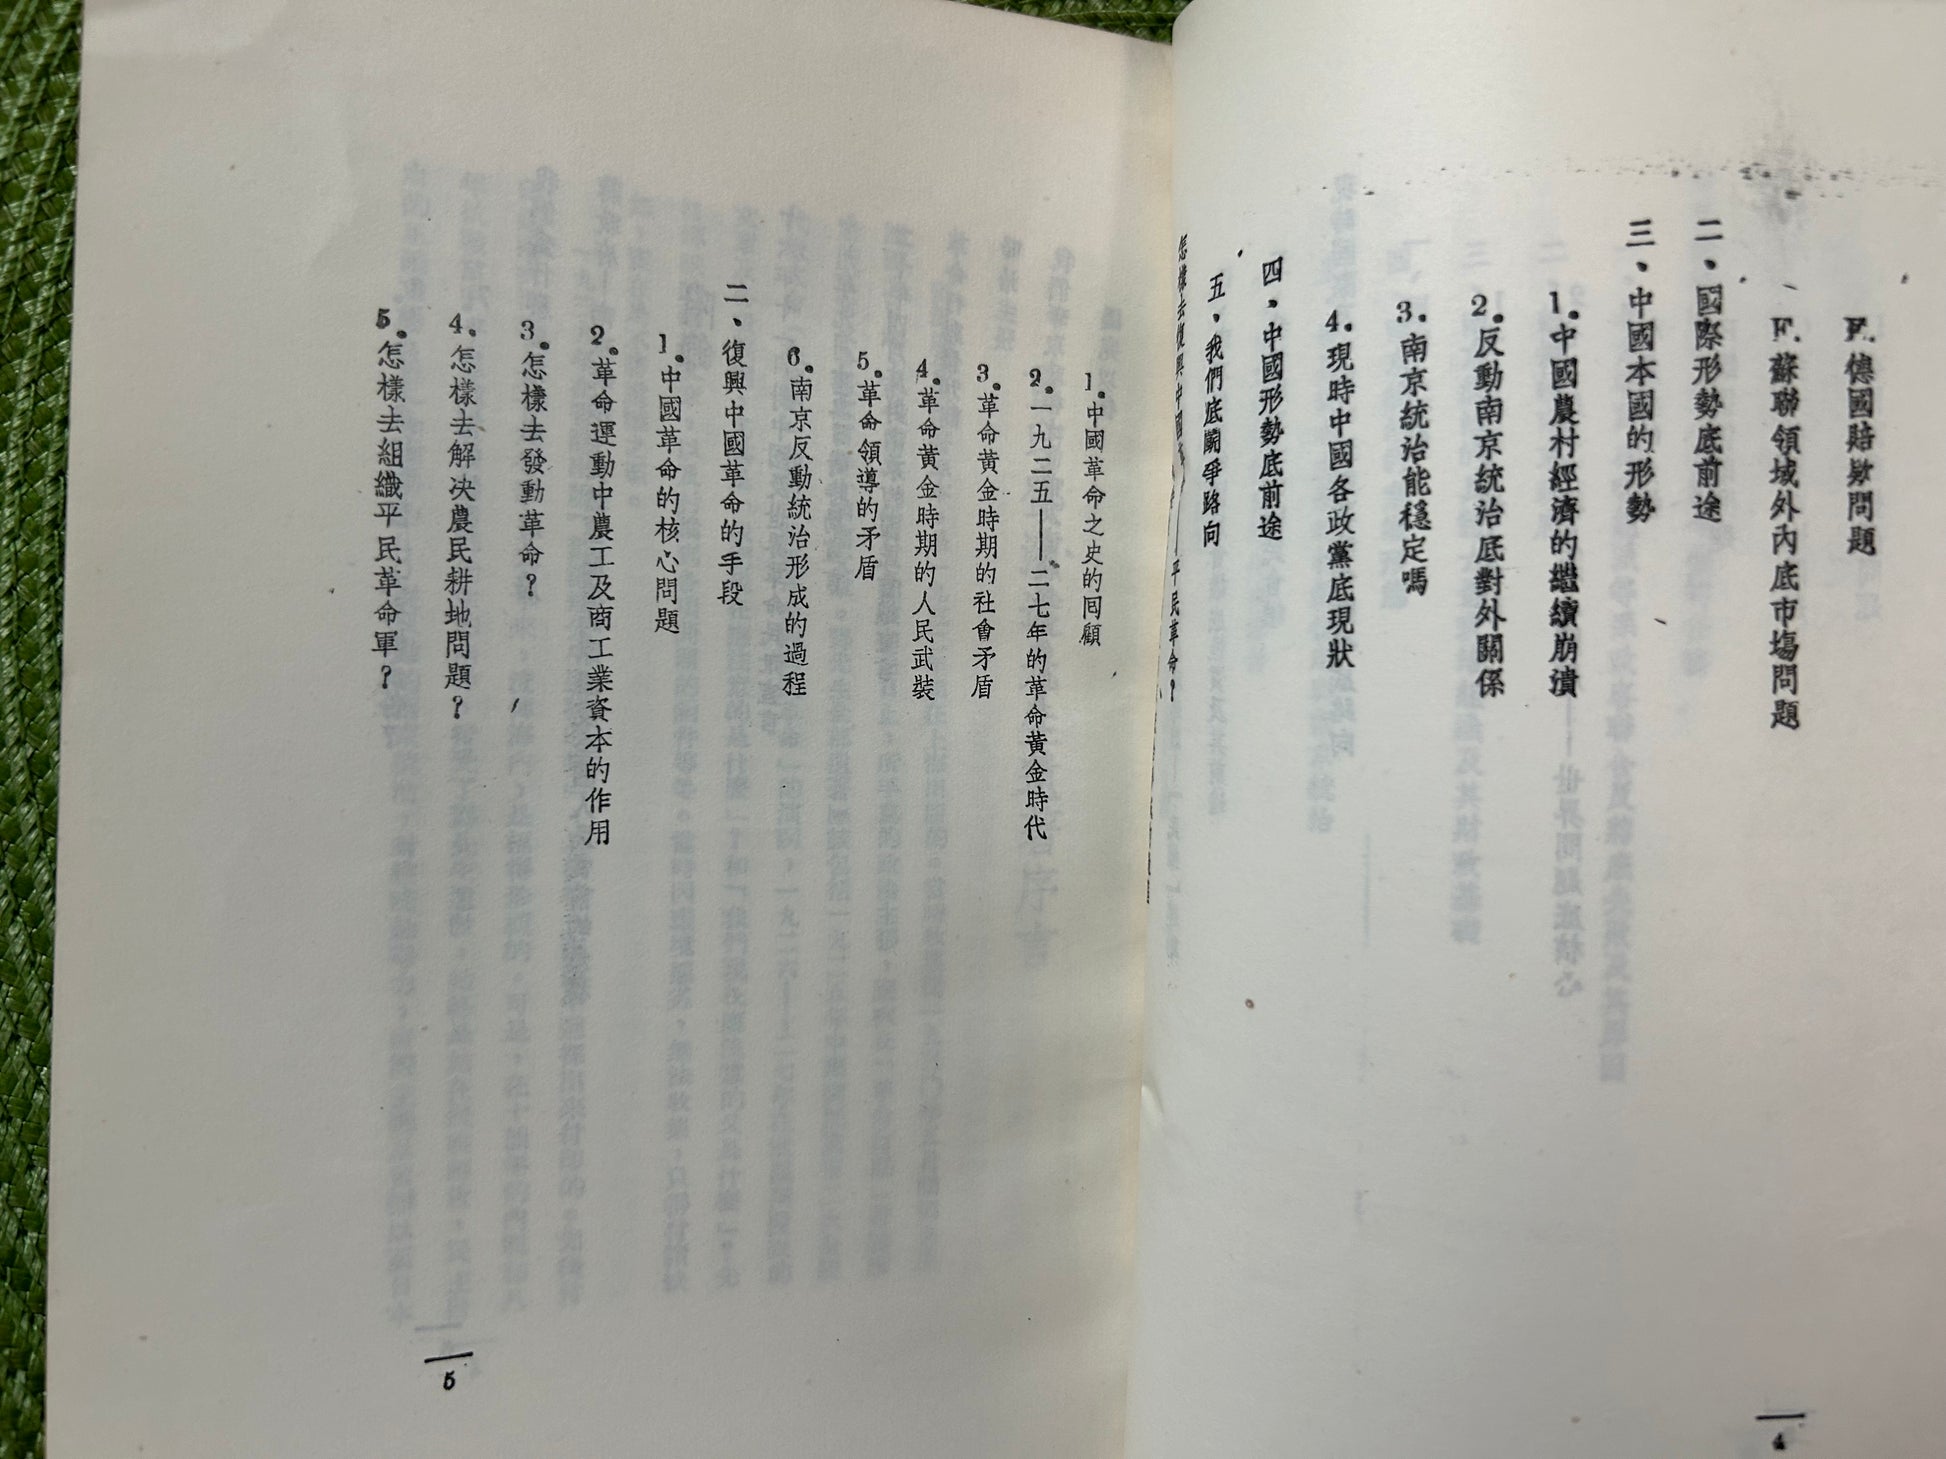 E.德國賠欵問題
F.蘇聯領域外內底市塲問題
二、國際形勢底前途
三、中國本國的形勢
1.中國農村經濟的繼續崩潰
2.反動南京統治底對外關係
3.南京統治能穩定嗎
4.現時中國各政黨底現狀
四、中國形勢底前途
五、我們底鬬爭路向
怎樣去復興中國革命——平民革命?
4
1.中國革命之史的囘顧
2.一九二五——二七年的革命黃金時代
3.革命黃金時期的社會矛盾
4.革命黃金時期的人民武裝
5.革命領導的矛盾
6.南京反動統治形成的過程
二、復興中國革命的手段
1.中國革命的核心問題
2.革命運動中農工及商工業資本的作用
3.怎樣去發動革命?
4.怎樣去解決農民耕地問題?
5.怎樣去組織平民革命軍?
5